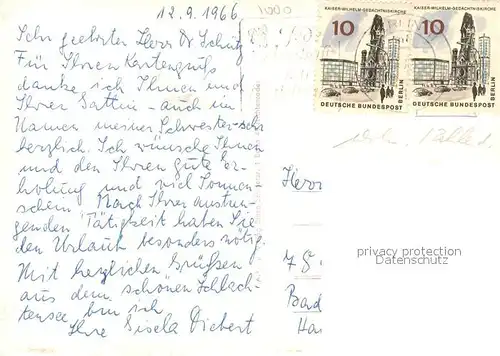 12.9.1966
Sehr geehrter Herr Dr Schütz
Für Ihren Kartengruß
danke ich Ihnen und
Ihrer Gattin - auch im
Namen meiner Schwester - sehr
herzlich. Ich wünsche Ihnen
und den Ihren gute Er-
holung und viel Sonnen-
schein. Nach Ihrer anstren-
genden Tätigkeit haben Sie
den Urlaub besonders nötig.
Mit herzlichen Grüßen
aus dem schönen Schlach-
tensee bin ich
Ihre Gisela Dickert
1000
KAISER-WILHELM-GEDÄCHTNISKIRCHE
10
DEUTSCHE BUNDESPOST
BERLIN
KAISER-WILHELM-GEDÄCHTNISKIRCHE
10
DEUTSCHE BUNDESPOST
BERLIN
Herr
privacy protection
Datenschutz
Bad